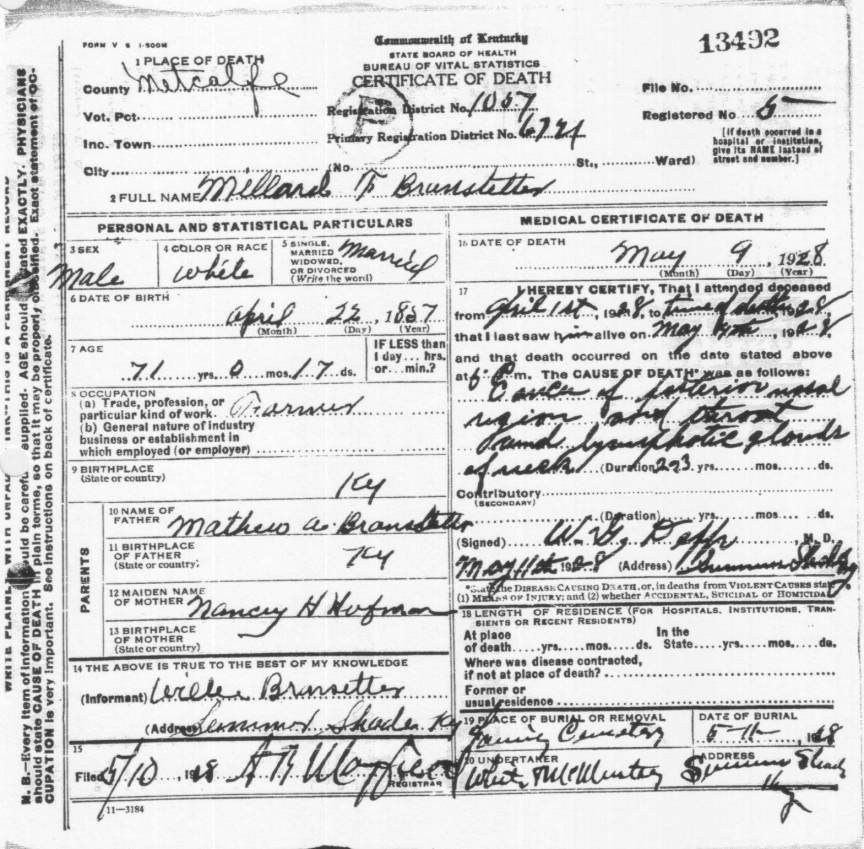 FORM V S 1-500M
Commonwealth of Kentucky
STATE BOARD OF HEALTH
BUREAU OF VITAL STATISTICS
CERTIFICATE OF DEATH
13492
1 PLACE OF DEATH
County Metcalfe
Vot. Pct.
Inc. Town
City (No. St., Ward)
Registration District No. 1057
Primary Registration District No.
P
File No.
Registered No. 5
[If death occurred in a
hospital or institution,
give its NAME instead of
street and number.]
2 FULL NAME Mellard F Branstetter
PERSONAL AND STATISTICAL PARTICULARS
3 SEX
Male
4 COLOR OR RACE
White
5 SINGLE,
MARRIED
WIDOWED,
OR DIVORCED
(Write the word)
Married
6 DATE OF BIRTH
April 22, 1857
(Month) (Day) (Year)
7 AGE
71 yrs. 0 mos. 17 ds.
IF LESS than
1 day... hrs.
or... min.?
8 OCCUPATION
(a) Trade, profession, or
particular kind of work. Farmer
(b) General nature of industry
business or establishment in
which employed (or employer)
9 BIRTHPLACE
(State or country)
Ky
PARENTS
10 NAME OF
FATHER Mathew a. Branstetter
11 BIRTHPLACE
OF FATHER
(State or country)
Ky
12 MAIDEN NAME
OF MOTHER Nancy H Hofman
13 BIRTHPLACE
OF MOTHER
(State or country)
14 THE ABOVE IS TRUE TO THE BEST OF MY KNOWLEDGE
(Informant) Branstetter
(Address) Summer Shade Ky
15
Filed 5/10 1928
REGISTRAR
11-3184
MEDICAL CERTIFICATE OF DEATH
16 DATE OF DEATH
May 9, 1928
(Month) (Day) (Year)
17 I HEREBY CERTIFY, That I attended deceased
from April 1st, 1928, to time of death, 1928,
that I last saw him alive on May 1928
and that death occurred on the date stated above
at 6 P m. The CAUSE OF DEATH* was as follows:
Cancer of posterior nasal
region and throat
and lymphotic glands
of neck (Duration) yrs. mos. ds.
Contributory
(SECONDARY)
(Duration) yrs. mos. ds.
(Signed) W. Depp, M. D.
May 11th 1928 (Address) Summer Shade Ky
*State the DISEASE CAUSING DEATH, or, in deaths from VIOLENT CAUSES state
(1) MEANS OF INJURY; and (2) whether ACCIDENTAL, SUICIDAL OR HOMICIDAL
18 LENGTH OF RESIDENCE (FOR HOSPITALS, INSTITUTIONS, TRAN-
SIENTS OR RECENT RESIDENTS)
At place In the
of death yrs. mos. ds. State yrs. mos. ds.
Where was disease contracted,
if not at place of death?
Former or
usual residence
19 PLACE OF BURIAL OR REMOVAL
Cemetery
DATE OF BURIAL
5-11- 1928
20 UNDERTAKER
ADDRESS
Summer Shade
Ky
N. B.—Every item of information should be carefully supplied. AGE should be stated EXACTLY. PHYSICIANS
should state CAUSE OF DEATH in plain terms, so that it may be properly classified. Exact statement of OC-
CUPATION is very important. See instructions on back of certificate.